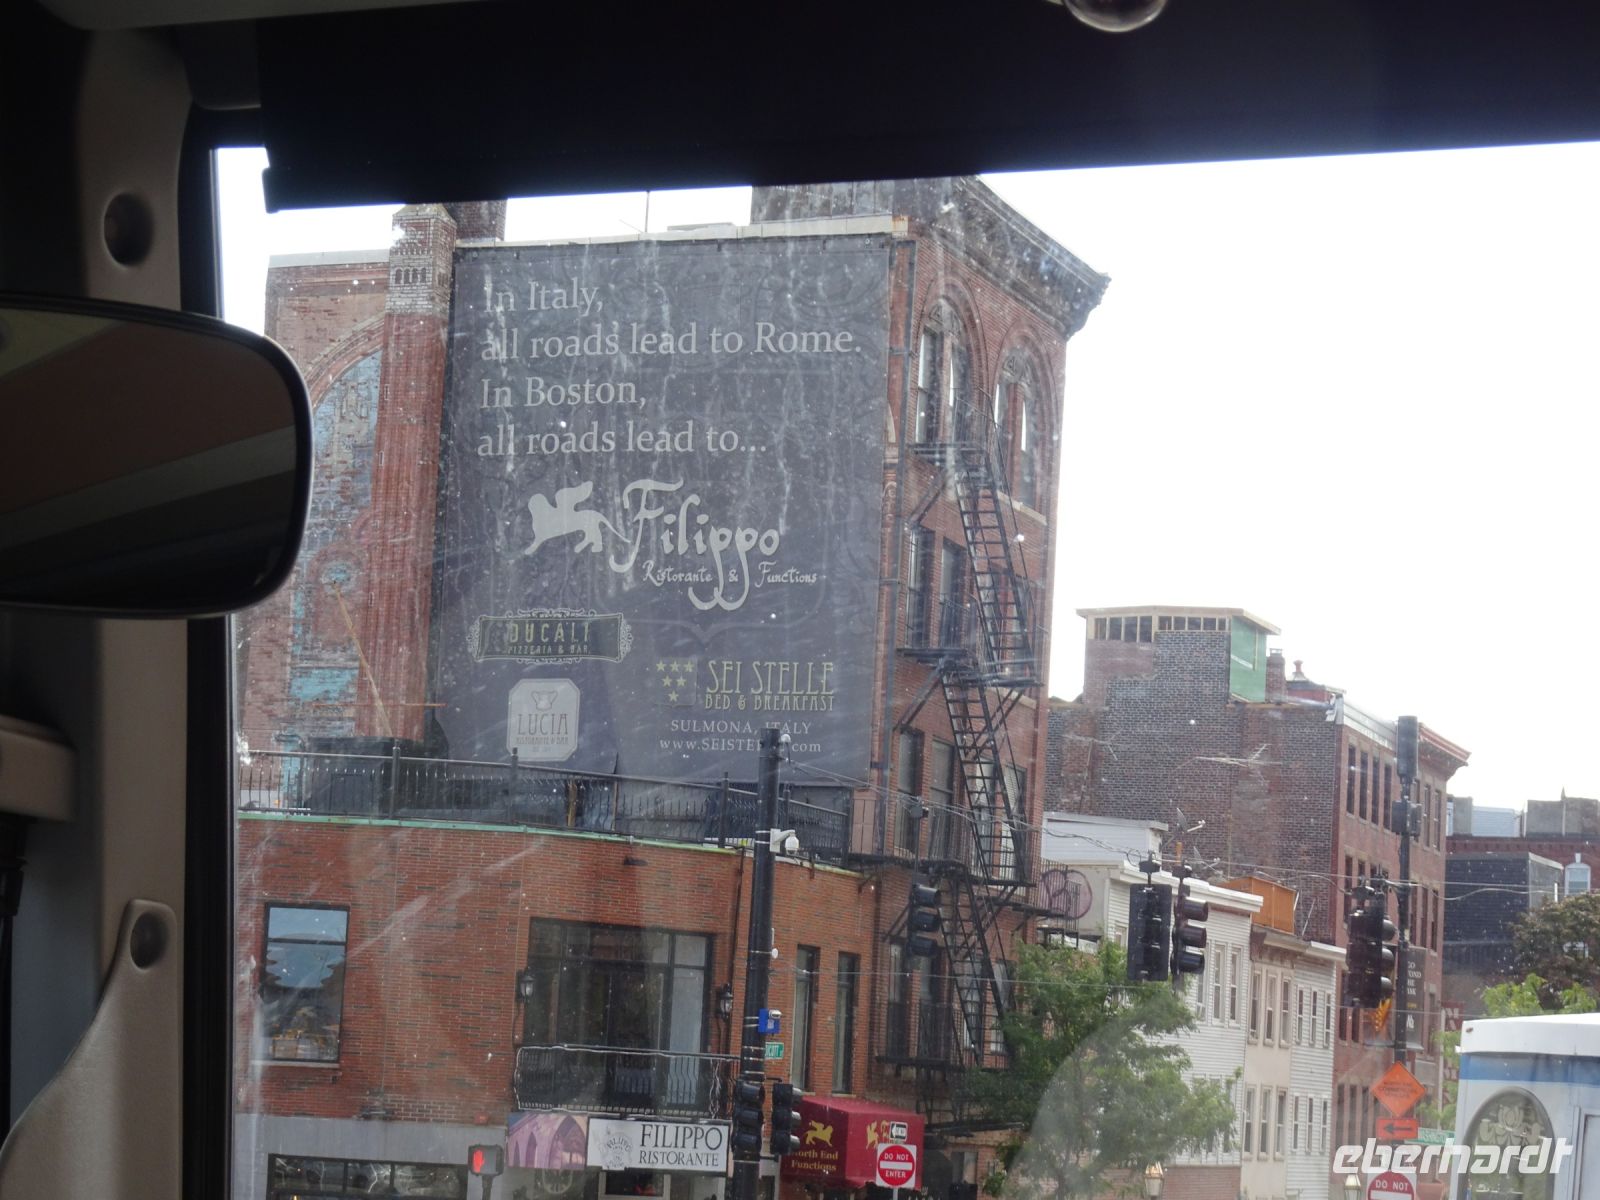 In Italy,
all roads lead to Rome.
In Boston,
all roads lead to...
Filippo
Ristorante & Functions
DUCALI
PIZZERIA & BAR
SEI STELLE
BED & BREAKFAST
SULMONA, ITALY
LUCIA
RISTORANTE & BAR
FILIPPO
RISTORANTE
North End
Functions
DO NOT
ENTER
DO NOT
eberhardt